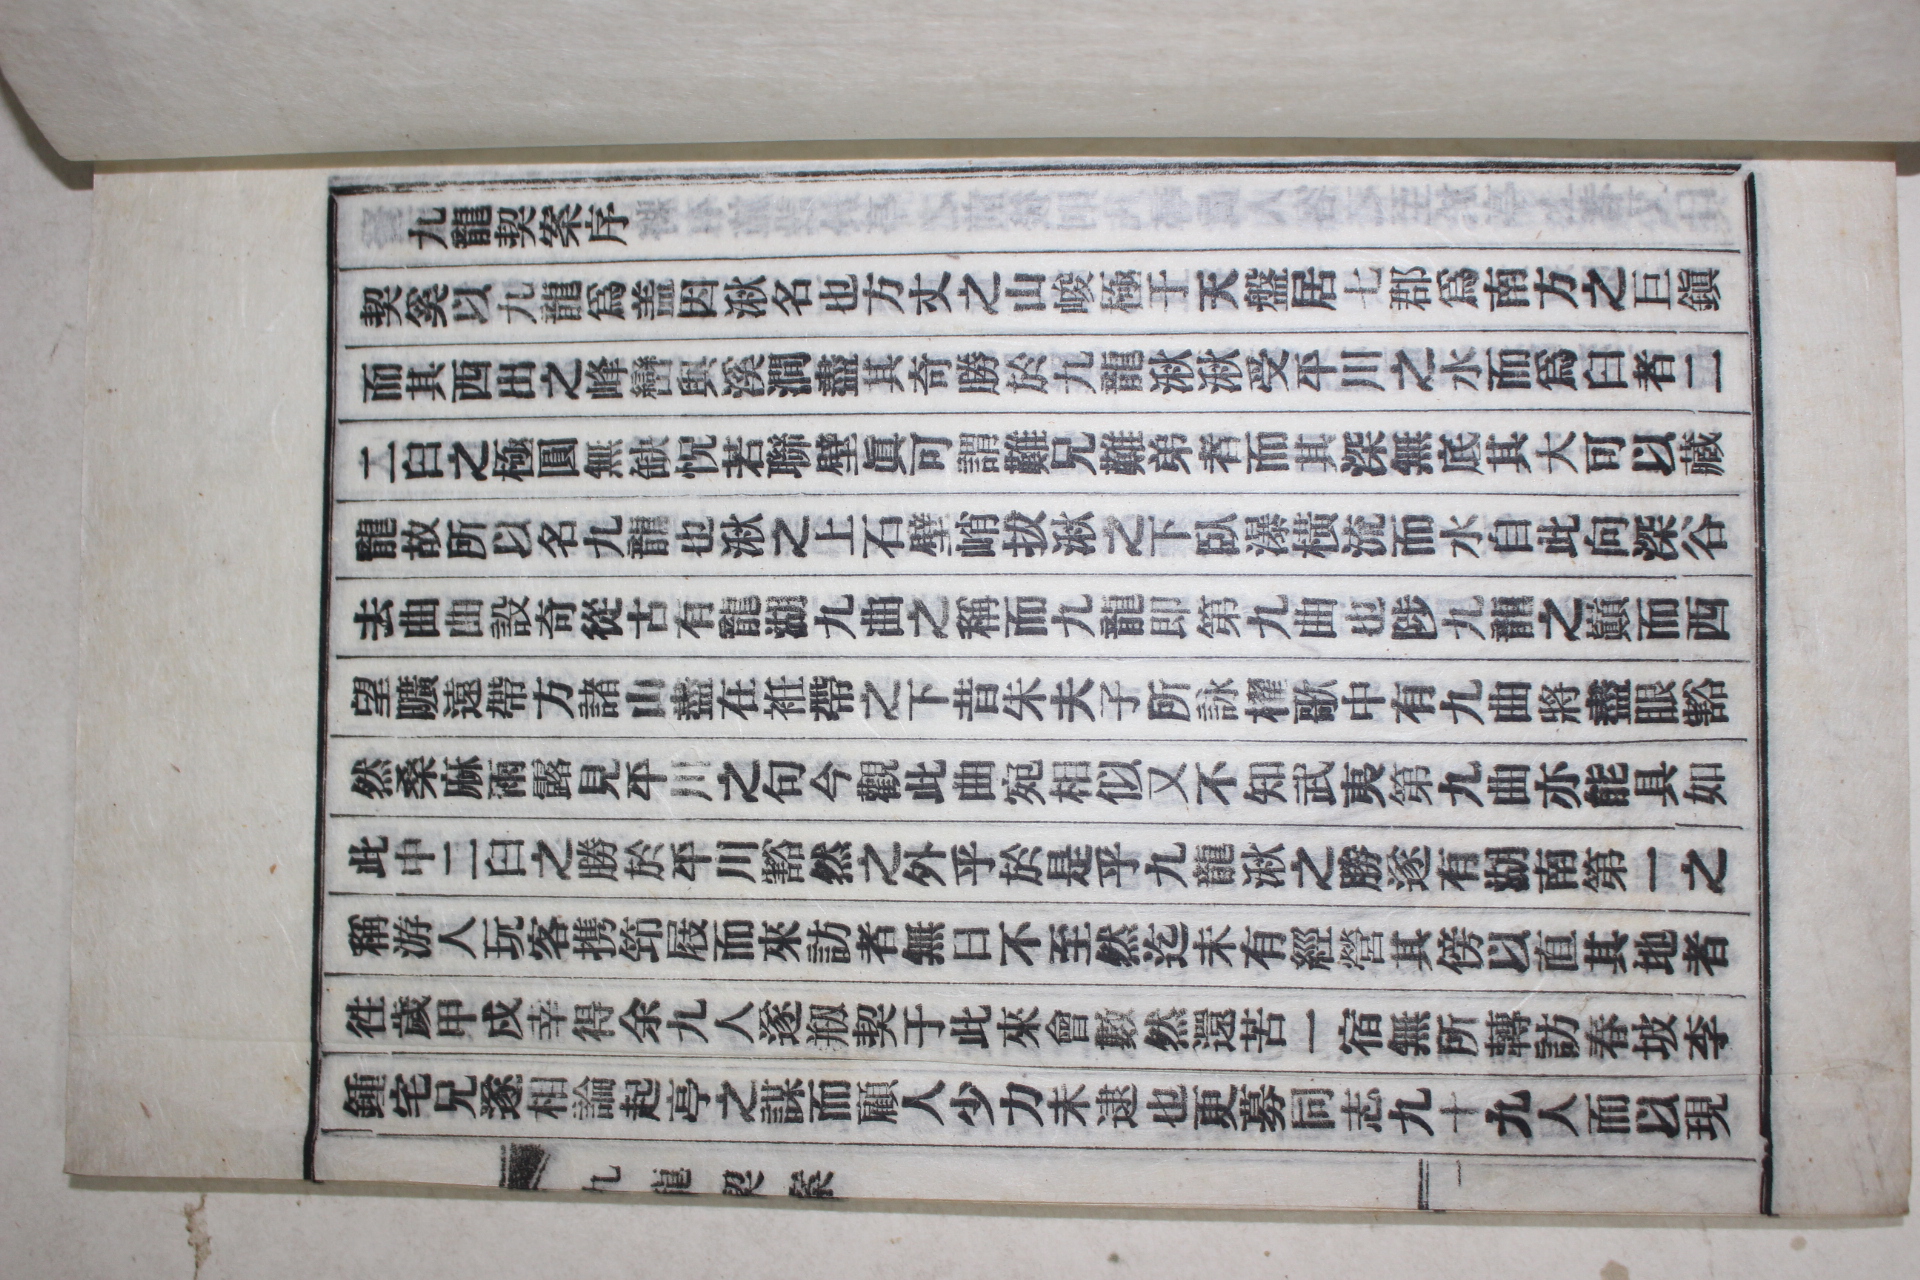 九龍契案序
契奚以九龍爲盖因湫名也方丈之山峻極于天盤居七郡爲南方之巨鎭
而其西出之峰巒與溪澗盡其奇勝於九龍湫湫受平川之水而爲臼者二
二臼之極圓無缺怳若聯璧眞可謂難兄難弟者而其深無底其大可以藏
龍故所以名九龍也湫之上石壁峭拔湫之下臥瀑橫流而水自此向深谷
去曲曲設奇從古有龍湖九曲之稱而九龍即第九曲也陟九龍之巓而西
望曠遠帶方諸山盡在袵帶之下昔朱夫子所詠櫂歌中有九曲將盡眼豁
然桑麻雨露見平川之句今觀此曲宛相似又不知武夷第九曲亦能具如
此中二臼之勝於平川豁然之外乎於是乎九龍湫之勝遂有湖南第一之
稱游人玩客携筇屐而來訪者無日不至然迄未有經營其傍以直其地者
徃歲甲戍幸得余九人遂刱契于此來會數然還苦一宿無所轉訪春坡李
鍾宅兄遂相論起亭之謀而顧人少力未逮也更募同志九十九人而以現
九龍契案
一